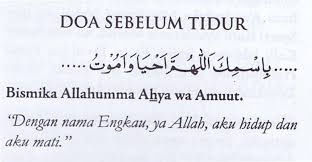 DOA SEBELUM TIDUR
..... بِاسْمِكَ اللّٰهُمَّ اَحْيَا وَاَمُوْتُ .....
Bismika Allahumma Ahya wa Amuut.
“Dengan nama Engkau, ya Allah, aku hidup dan
aku mati.”